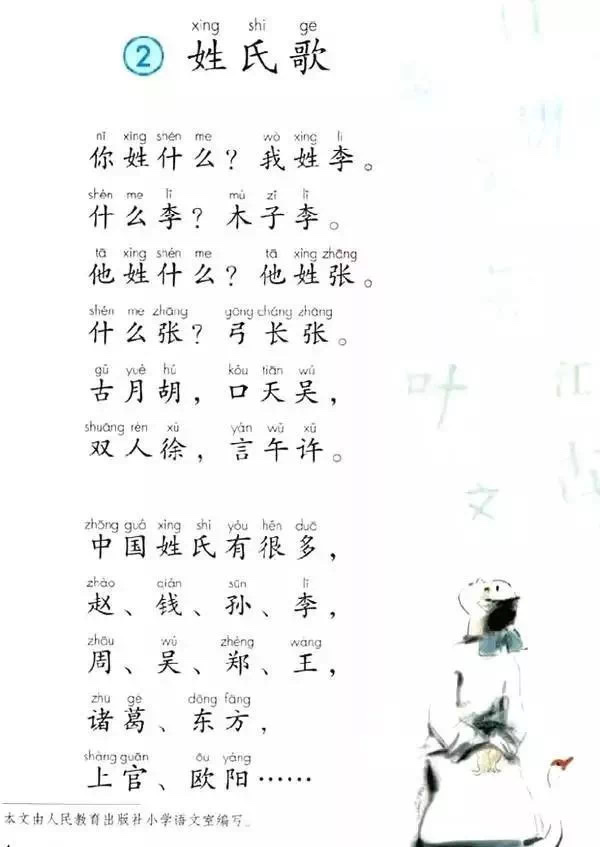 xìng shì gē
2 姓氏歌
nǐ xìng shén me wǒ xìng lǐ
你姓什么？我姓李。
shén me lǐ mù zǐ lǐ
什么李？木子李。
tā xìng shén me tā xìng zhāng
他姓什么？他姓张。
shén me zhāng gōng cháng zhāng
什么张？弓长张。
gǔ yuè hú kǒu tiān wú
古月胡，口天吴，
shuāng rén xú yán wǔ xǔ
双人徐，言午许。
zhōng guó xìng shì yǒu hěn duō
中国姓氏有很多，
zhào qián sūn lǐ
赵、钱、孙、李，
zhōu wú zhèng wáng
周、吴、郑、王，
zhū gě dōng fāng
诸葛、东方，
shàng guān ōu yáng
上官、欧阳……
叶
江
文
本文由人民教育出版社小学语文室编写。